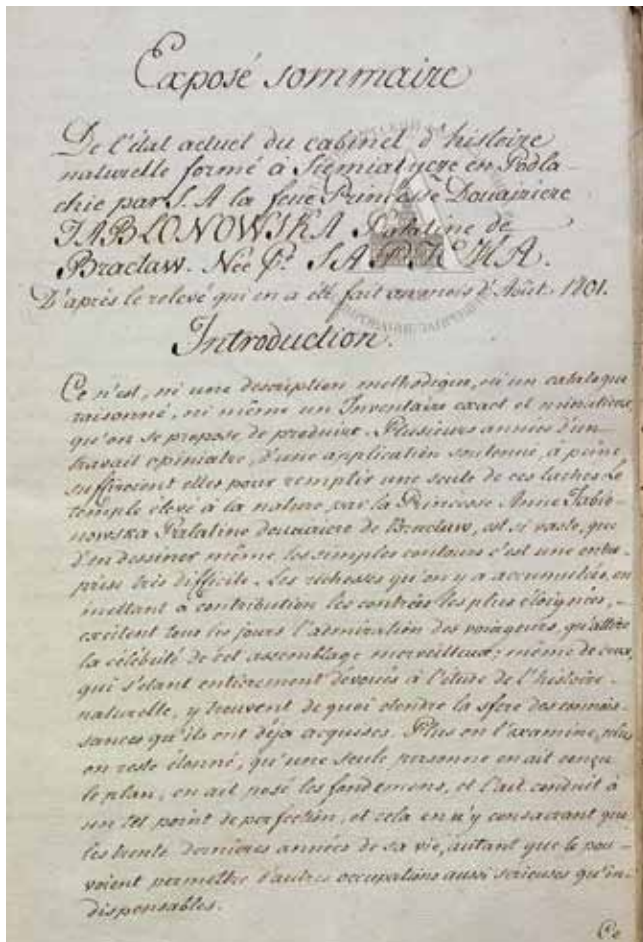 Exposé sommaire
De l'état actuel du cabinet d'histoire
naturelle formé à Siemiatycze en Podla-
chie par S. A la feue Princesse Douairiere
JABLONOWSKA Palatine de
Braclaw. Née Pse SAPIEHA.
D'après le relevé qui en a été fait au mois d'Août 1801.
Introduction.
Ce n'est, ni une description methodique, ni un catalogue
raisonné, ni même un Inventaire exact et minutieux,
qu'on se propose de produire. Plusieurs années d'un
travail opiniatre, d'une application soutenue, à peine
suffiroient elles pour remplir une seule de ces taches. Le
temple élevé à la nature par la Princesse Anne Jablo-
nowska Palatine douairiere de Braclaw, est si vaste, que
d'en dessiner même les simples contours c'est une entre-
prise très difficile. Les richesses qu'on y a accumulées, en
mettant à contribution les contrées les plus éloignées,
excitent tous les jours l'admiration des voiageurs, qu'attire
la célébrité de cet assemblage merveilleux; même de ceux,
qui s'étant entièrement dévoués à l'étude de l'histoire
naturelle, y trouvent de quoi étendre la sfere des connois-
sances qu'ils ont déja acquises. Plus on l'examine, plus
on reste étonné, qu'une seule personne en ait conçu
le plan, en ait posé les fondemens, et l'ait conduit à
un tel point de perfection, et cela en n'y consacrant que
les trente dernières années de sa vie, autant que le pou-
voient permettre d'autres occupations aussi serieuses qu'in-
dispensables.
Ce